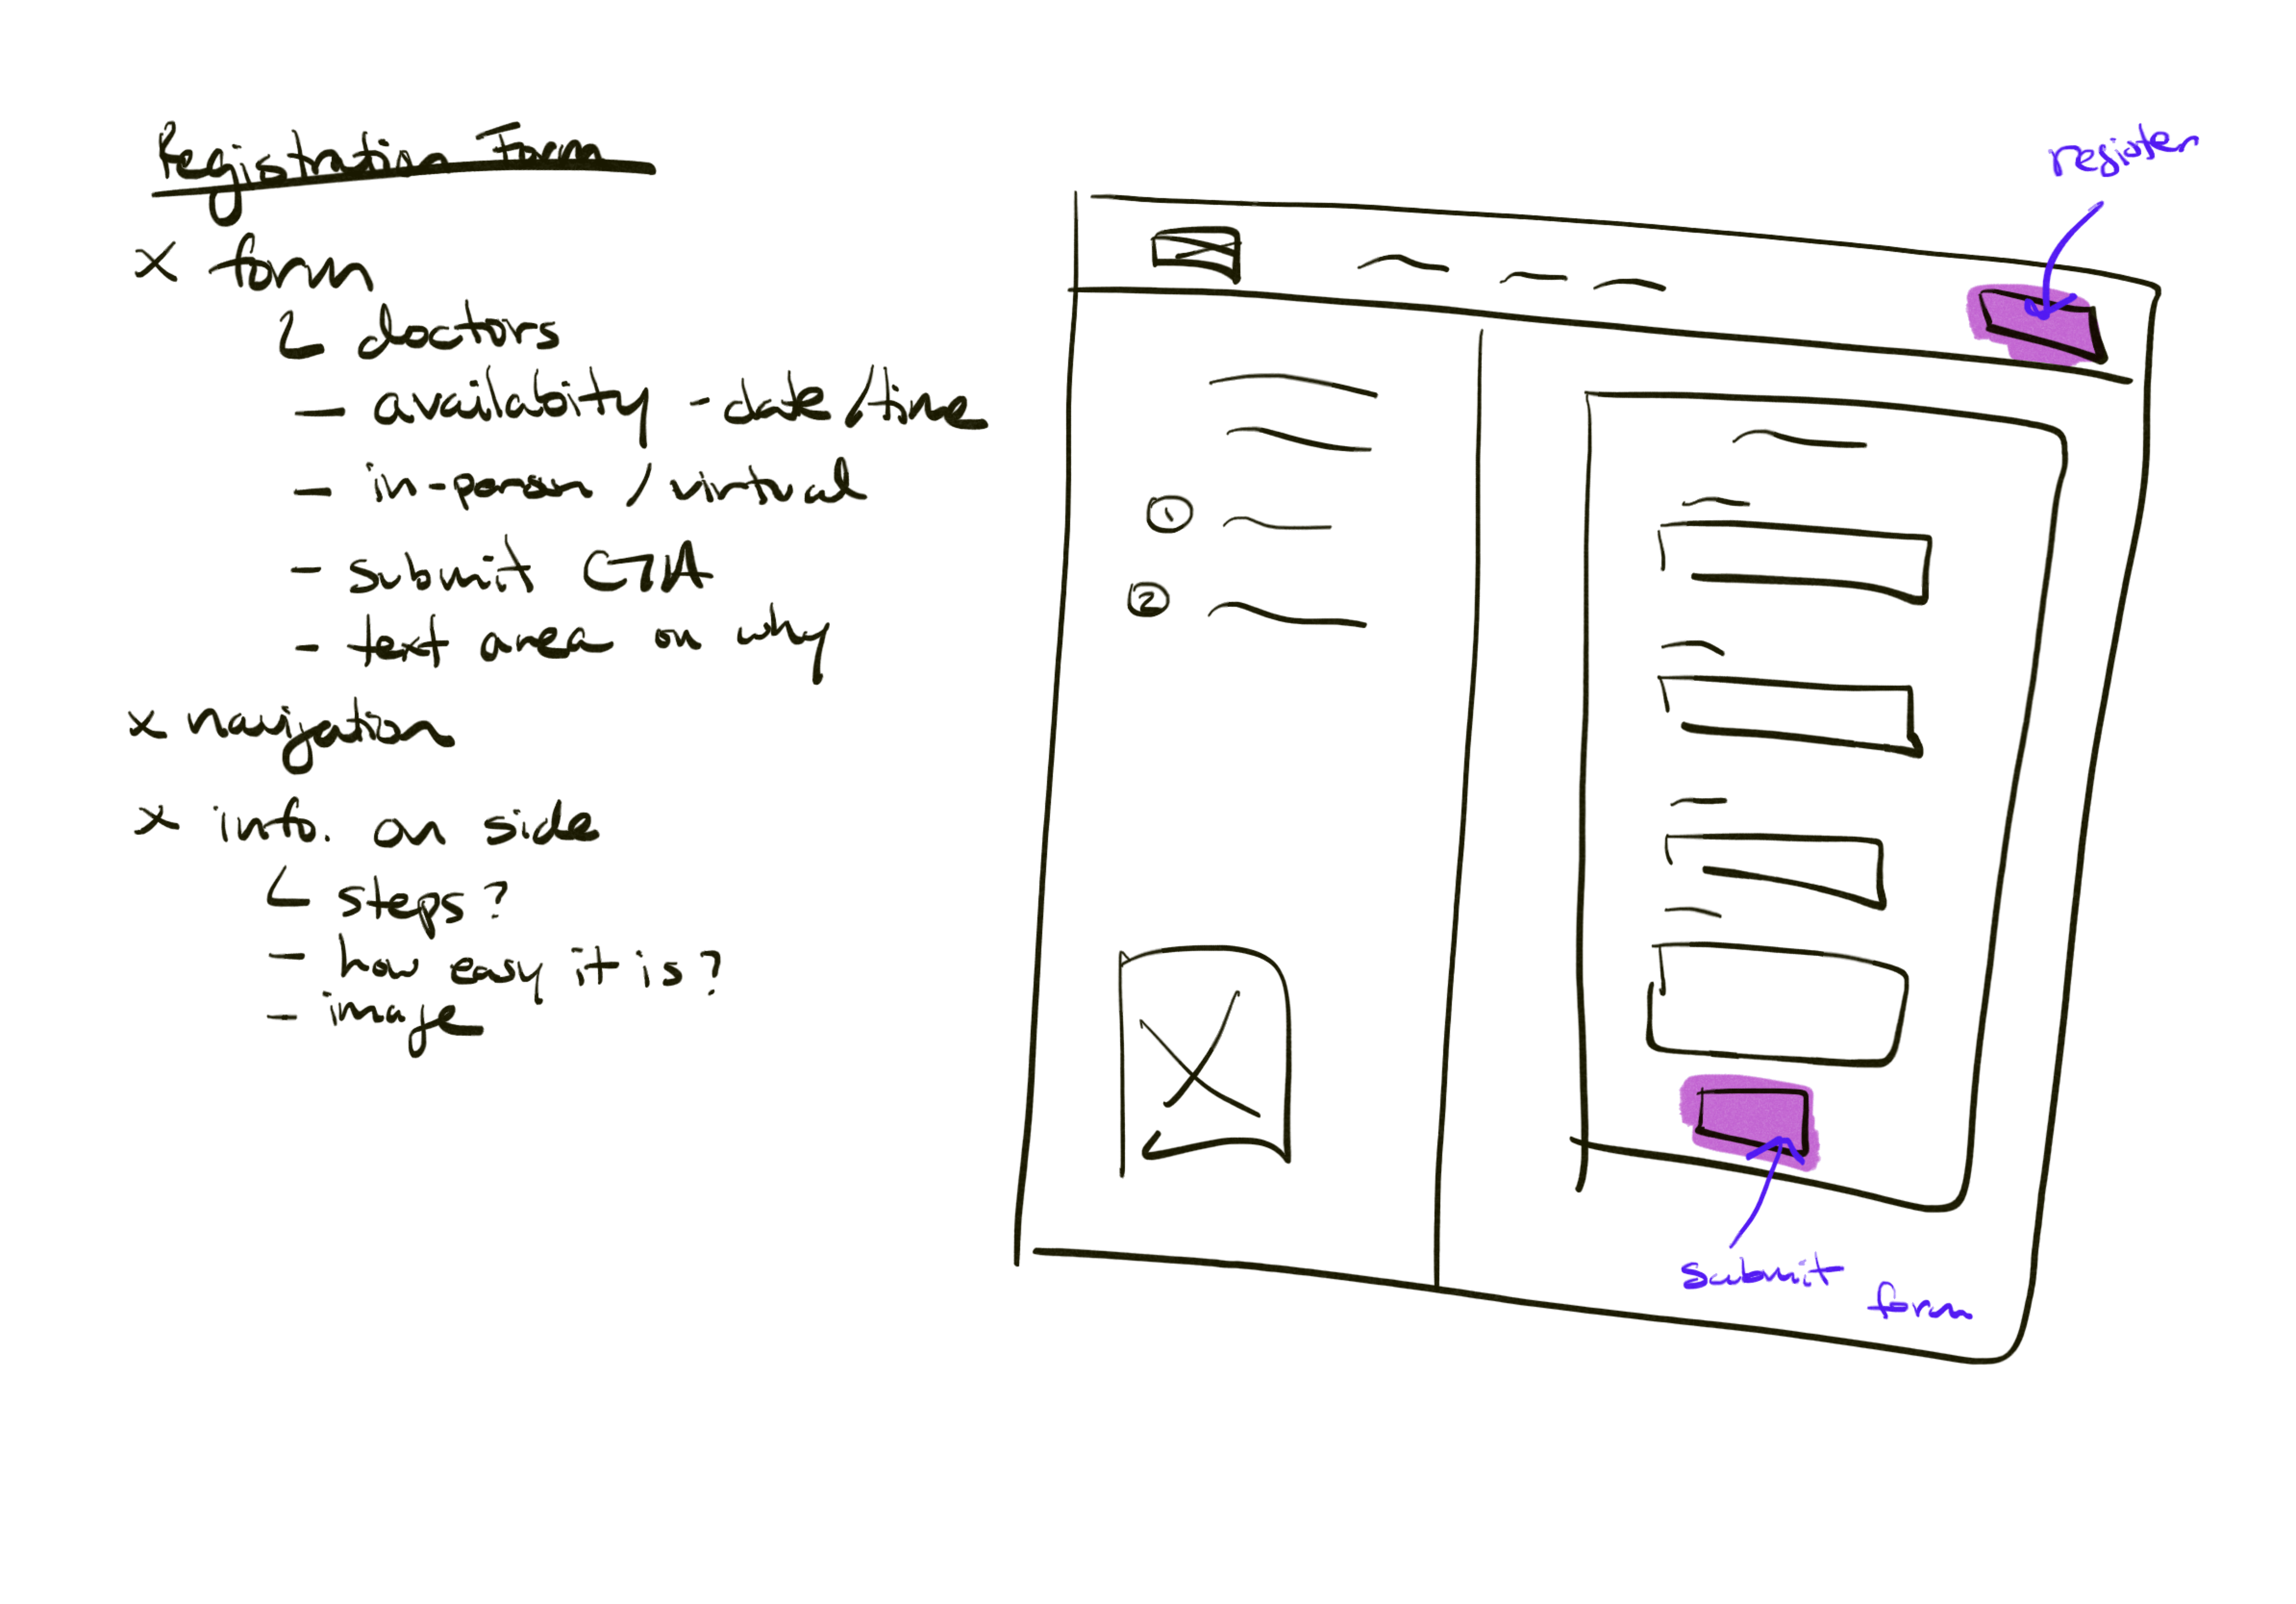 Registration Form
x form
doctors
- availability - date/time
- in-person / virtual
- submit CTA
- text area on why
x navigation
x info. on side
steps?
- how easy it is?
- image
register
1
2
submit
form